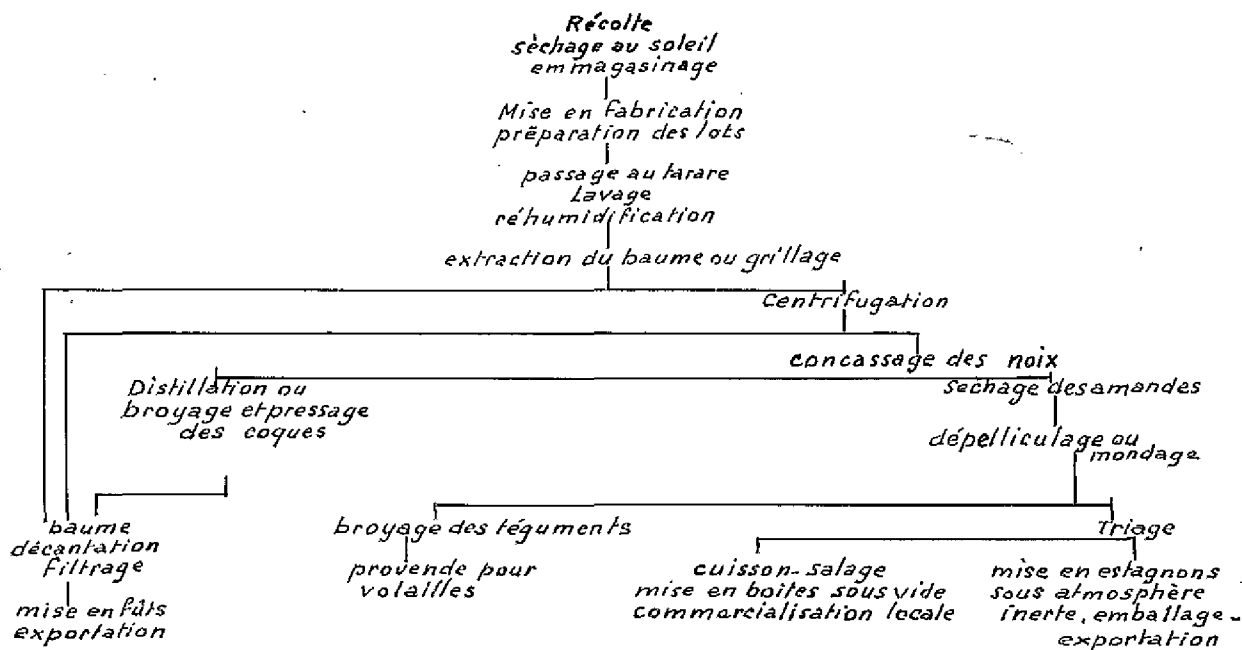 Récolte
sèchage au soleil
emmagasinage
Mise en fabrication
préparation des lots
passage au tarare
Lavage
réhumidification
extraction du baume ou grillage
Centrifugation
concassage des noix
Distillation ou
broyage et pressage
des coques
Sechage des amandes
dépelliculage ou
mondage
baume
décantation
filtrage
mise en fûts
exportation
broyage des téguments
provende pour
volailles
Triage
cuisson-salage
mise en boites sous vide
commercialisation locale
mise en estagnons
sous atmosphère
inerte, emballage-
exportation